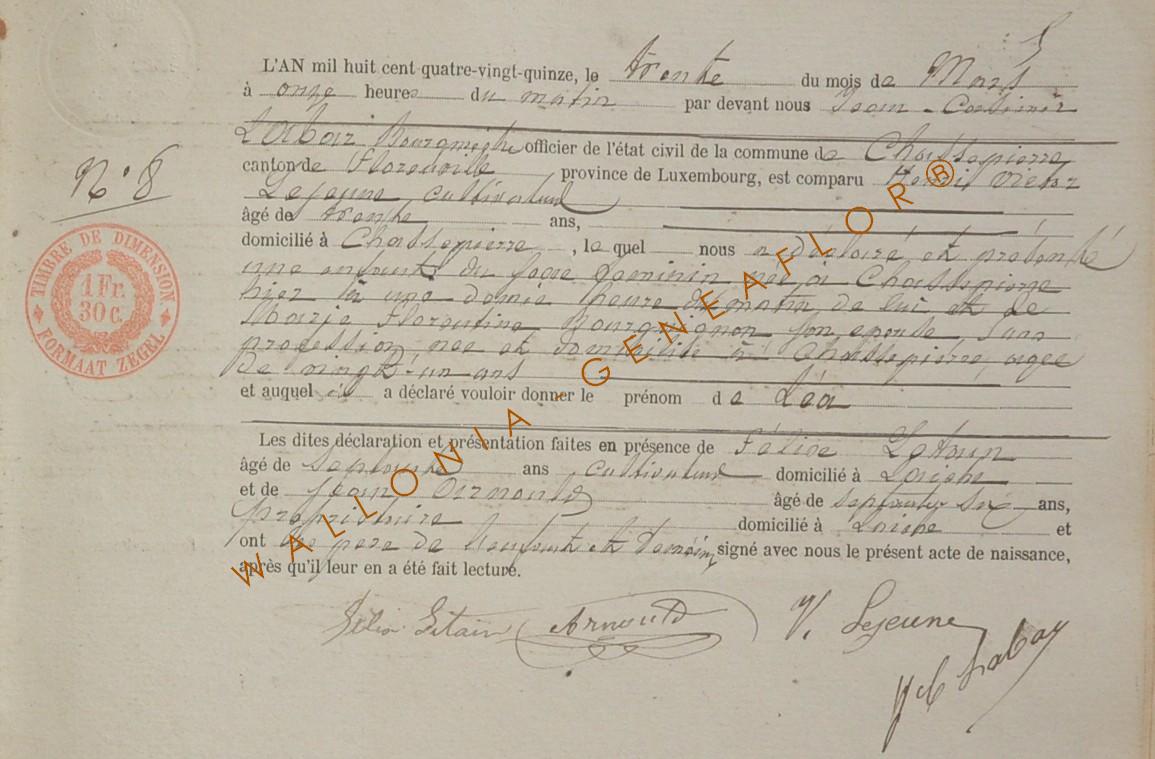 N° 8
TIMBRE DE DIMENSION
1 Fr.
30 C.
FORMAAT ZEGEL
L'AN mil huit cent quatre-vingt-quinze, le trente du mois de Mars
à onze heures du matin par devant nous Jean-Casimir
Bourgmestre officier de l'état civil de la commune de Chassepierre
canton de Florenville province de Luxembourg, est comparu Henri
Lejeune cultivateur
âgé de trente ans,
domicilié à Chassepierre, le quel nous a déclaré et présenté
une enfant du sexe feminin née à Chassepierre
hier à une demie heure du matin de lui et de
Marie Florentine Bourguignon son epouse sans
profession née et domiciliée à Chassepierre agée
de vingt-un ans
et auquel il a déclaré vouloir donner le prénom de Léa
Les dites déclaration et présentation faites en présence de
âgé de septante ans cultivateur domicilié à Laiche
et de Jean Arnould âgé de septante six ans,
propriétaire domicilié à Laiche et
ont le pere de l'enfant et temoins signé avec nous le présent acte de naissance,
après qu'il leur en a été fait lecture.
Arnould V. Lejeune
WALLONIA - GENEAFLOR®